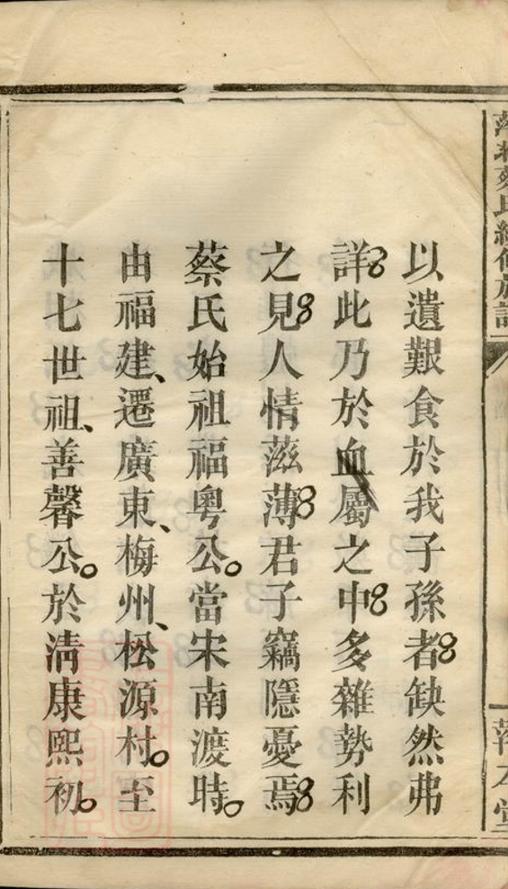 蔡氏
族譜
以遺艱食於我子孫者缺然弗
詳此乃於血屬之中多雜勢利
之見人情滋薄君子竊隱憂焉
蔡氏始祖福粵公。當宋南渡時。
由福建、遷廣東、梅州、松源村。至
十七世祖、善馨公。於淸康熙初。